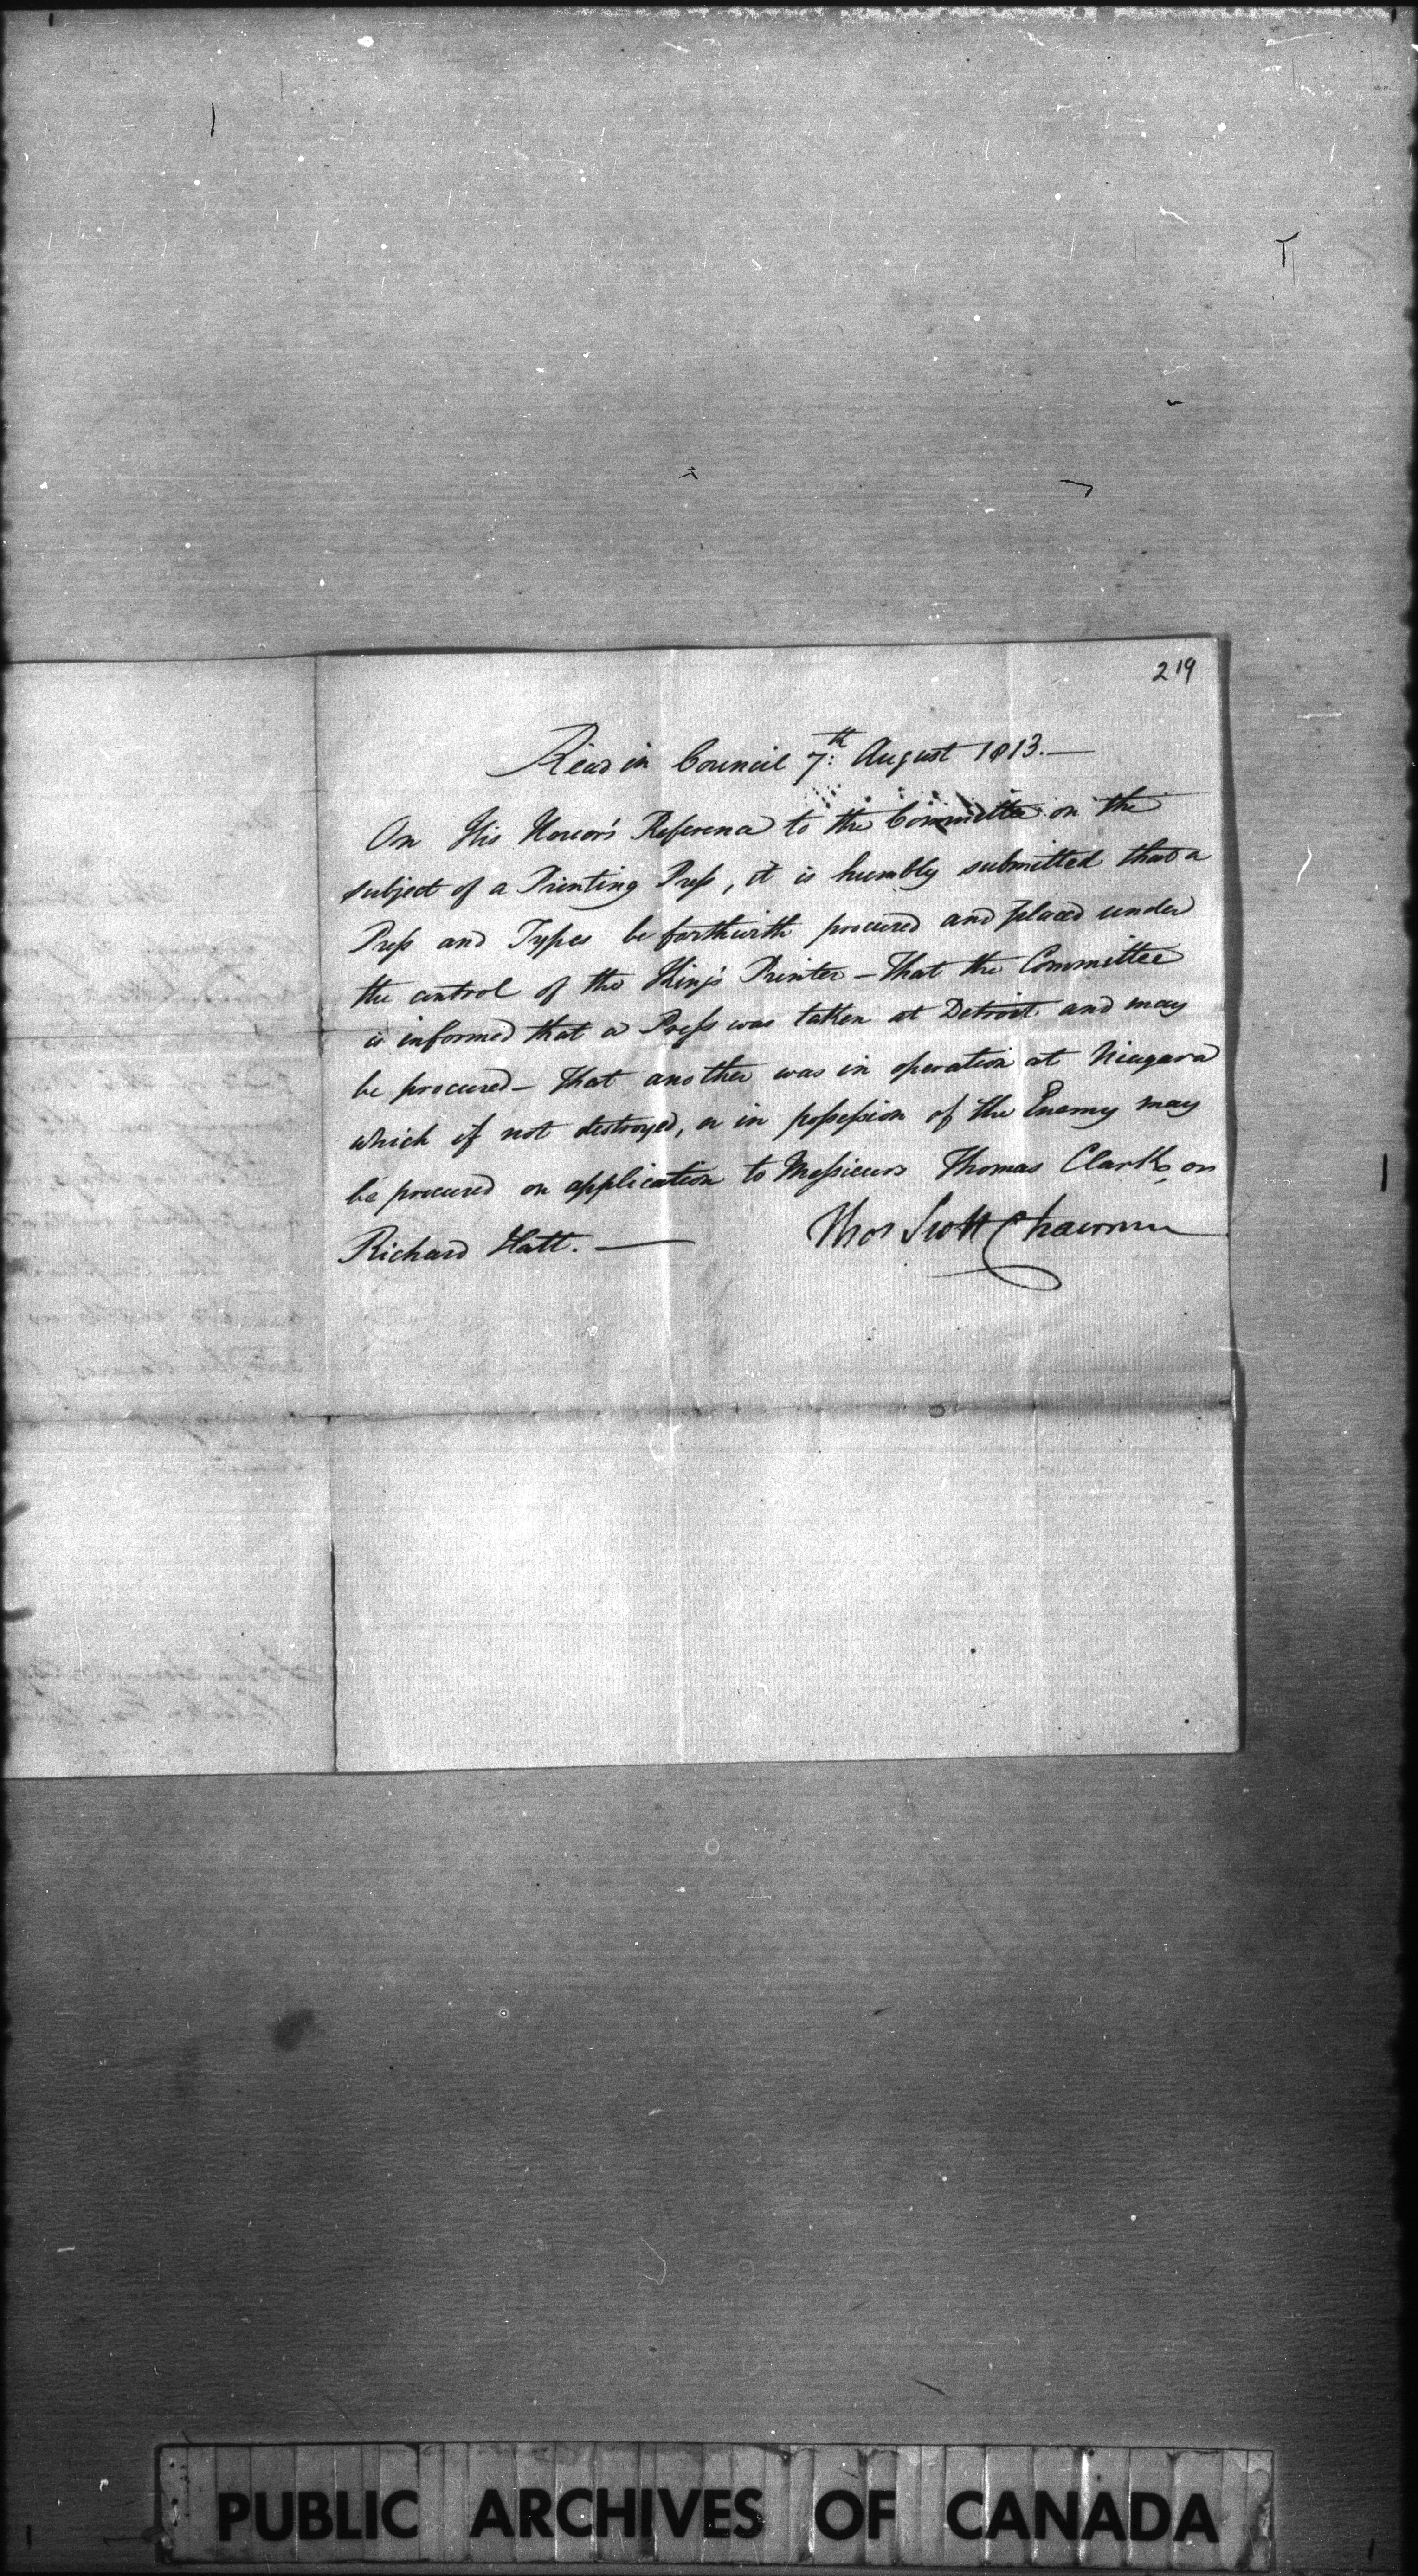 219
Read in Council 7th: August 1813.—
On His Honor's Reference to the Committee on the
subject of a Printing Press, it is humbly submitted that a
Press and Types be forthwith procured and placed under
the control of the King's Printer – That the Committee
is informed that a Press was taken at Detroit and may
be procured – That another was in operation at Niagara
which if not destroyed, or in possession of the Enemy may
be procured on application to Messieurs Thomas Clark or
Richard Hatt. —
Thos Scott Chairman
PUBLIC ARCHIVES OF CANADA